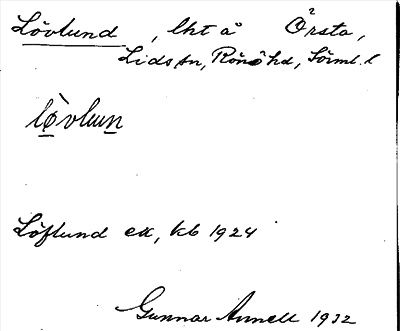 Lövlund, lht å Örsta,
Lids sn, Rönö hd, Sörml. l
lòvlun
Löflund ek, kb 1924
Gunnar Annell 1932